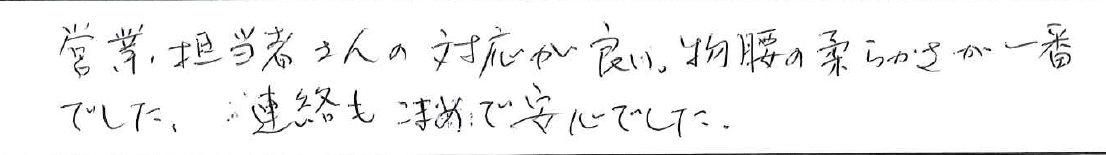 営業、担当者さんの対応が良い。物腰の柔らかさが一番
でした。連絡もこまめで安心でした。